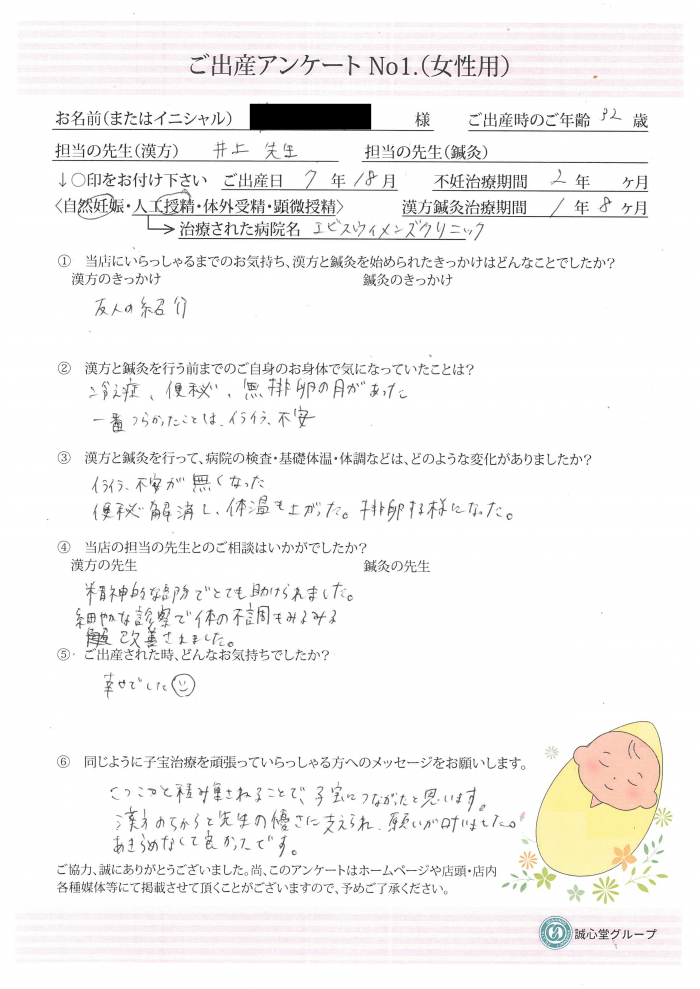 ご出産アンケート No1.（女性用）
お名前（またはイニシャル） 様 ご出産時のご年齢 32 歳
担当の先生（漢方） 井上 先生 担当の先生（鍼灸）
↓○印をお付け下さい ご出産日 7 年 18 月 不妊治療期間 2 年 ヶ月
〈自然妊娠・人工授精・体外受精・顕微授精〉 漢方鍼灸治療期間 1 年 8 ヶ月
治療された病院名 エビスウィメンズクリニック
① 当店にいらっしゃるまでのお気持ち、漢方と鍼灸を始められたきっかけはどんなことでしたか？
漢方のきっかけ 鍼灸のきっかけ
友人の紹介
② 漢方と鍼灸を行う前までのご自身のお身体で気になっていたことは？
冷え症、便秘、無排卵の月があった
一番つらかったことは、イライラ、不安
③ 漢方と鍼灸を行って、病院の検査・基礎体温・体調などは、どのような変化がありましたか？
イライラ、不安が無くなった
便秘解消し、体温も上がった。排卵する様になった。
④ 当店の担当の先生とのご相談はいかがでしたか？
漢方の先生 鍼灸の先生
精神的な部分でとても助けられました。
細やかな診察で体の不調もみるみる
改善されました。
⑤ ご出産された時、どんなお気持ちでしたか？
幸せでした
⑥ 同じように子宝治療を頑張っていらっしゃる方へのメッセージをお願いします。
こつこつと積み重ねることで、子宝につながったと思います。
漢方のちからと先生の優さに支えられ、願いが叶いました。
あきらめなくて良かったです。
ご協力、誠にありがとうございました。尚、このアンケートはホームページや店頭・店内
各種媒体等にて掲載させて頂くことがございますので、予めご了承ください。
誠心堂グループ